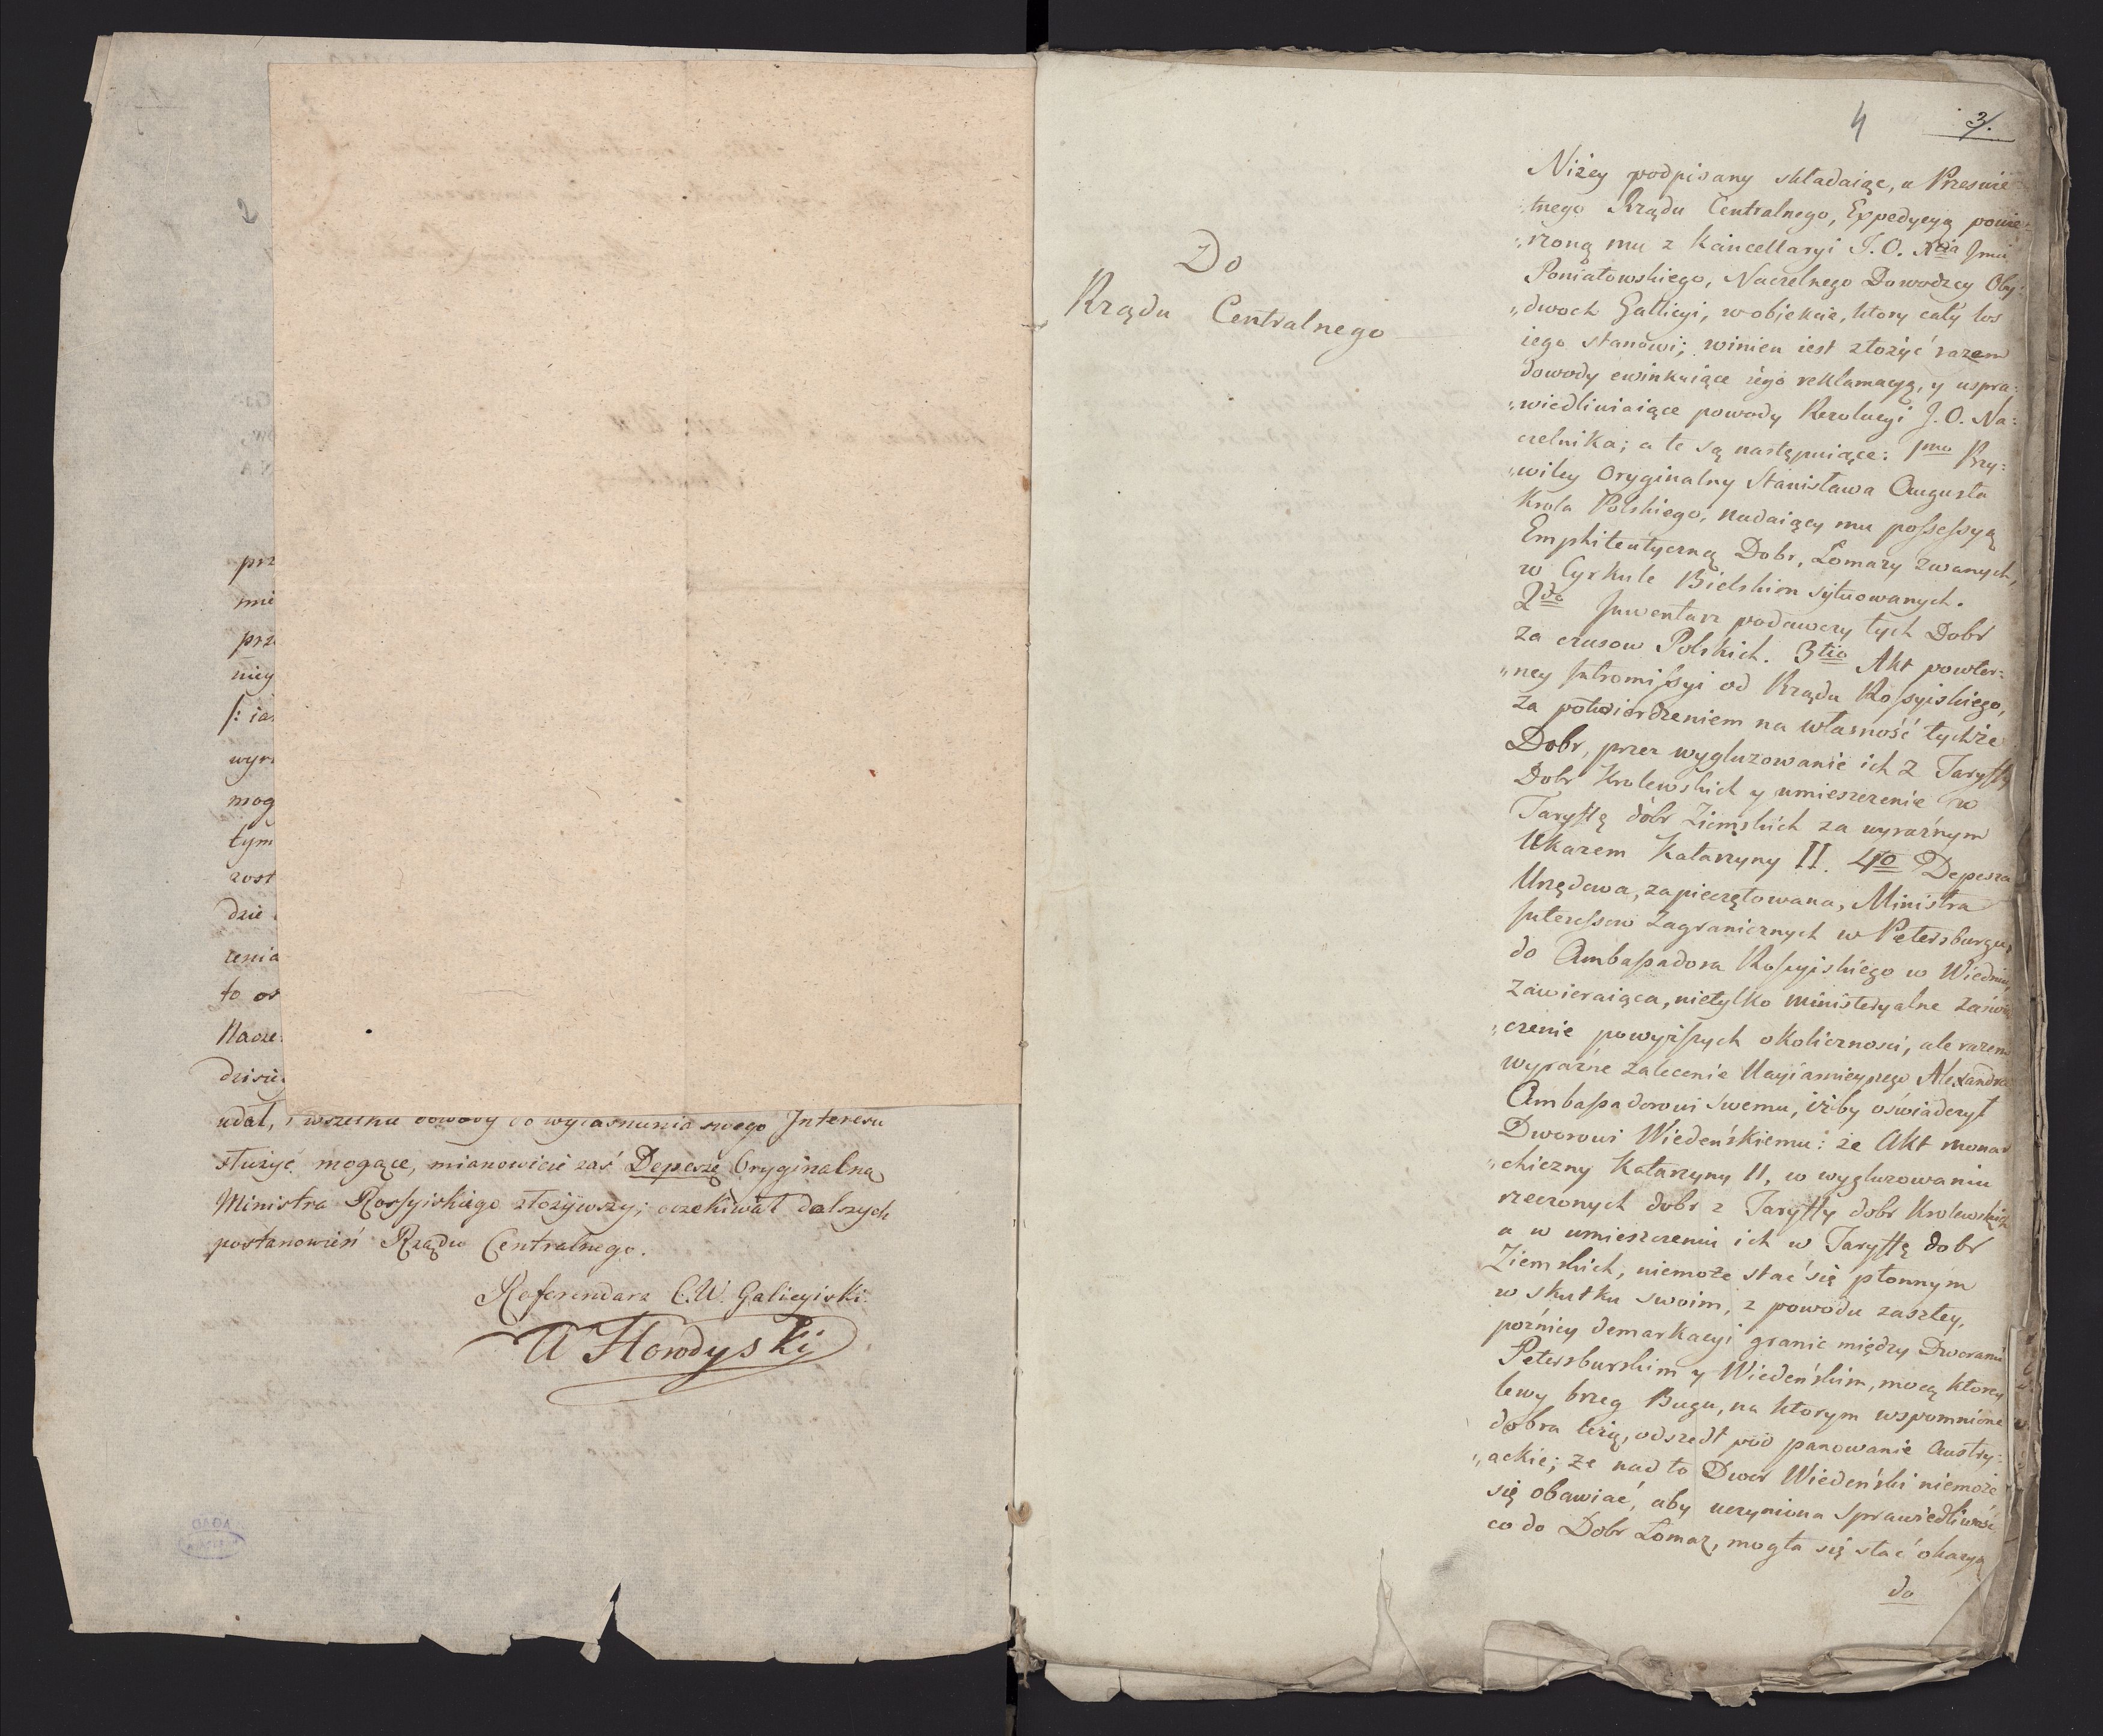 2
prz
mie
prze
niey
/: ia
wyr
mog
tym
zost
dzie
cenia
to or
Nacze
dzisie
udał, i wszelkie dowody do wyiasnienia swego Interesu
służyć mogące, mianowicie zaś Depeszę Oryginalną
Ministra Rossyiskiego złożywszy; oczekiwał dalszych
postanowień Rządu Centralnego.
Referendarz C.W. Galicyiski.
A Horodyski
4 3/.
Do
Rządu Centralnego
Niżey podpisany składaiąc, u Prześwie
tnego Rządu Centralnego, Expedycyą powie-
„rzoną mu z Kancellaryi J.O. Xcia Jmći
Poniatowskiego, Naczelnego Dowodzcy Oby-
„dwoch Gallicyi, w objekcie, ktory cały los
iego stanowi; winien iest złożyć razem
dowody ewinkuiące iego reklamacyą, y uspra-
„wiedliwiaiące powody Rezolucyi J.O. Na-
czelnika; a te są następuiące: 1mo Przy-
„wiley Oryginalny Stanisława Augusta
Krola Polskiego, nadaiący mu possessyą
Emphiteutyczną Dobr, Łomazy zwanych,
w Cyrkule Bielskim sytuowanych.
2do Inwentarz podawczy tych Dobr
za czasow Polskich. 3tio Akt powtor-
„ney Intromissyi od Rządu Rossyiskiego,
za potwierdzeniem na własność tychże
Dobr, przez wygluzowanie ich z Taryffy
Dobr Krolewskich y umieszczenie w
Taryffę dobr Ziemskich za wyraźnym
Ukazem Katarzyny II. 4to Depesza
Urzędowa, zapieczętowana, Ministra
Interessow Zagranicznych w Petersburgu,
do Ambassadora Rossyiskiego w Wiedniu,
zawieraiąca, nietylko ministeryalne zaświa
„czenie powyższych okoliczności, ale razem
wyraźne zalecenie Nayiasnieyszego Alexandra
Ambassadorowi swemu, iżby oświadczył
Dworowi Wiedeńskiemu: że Akt monar
„chiczny Katarzyny II, w wygluzowaniu
rzeczonych dobr z Taryffy dobr Krolewskich
a w umieszczeniu ich w Taryffę dobr
Ziemskich, niemoże stać się płonnym
w skutku swoim, z powodu zaszłey,
pożniey demarkacyi granic między Dworami
Petersburskim y Wiedeńskim, mocą ktorey
lewy brzeg Bugu, na ktorym wspomnione
dobra leżą, odszedł pod panowanie Austry-
„ackie; że nad to Dwor Wiedeński niemoże
się obawiać, aby uczyniona Sprawiedliwość
co do Dobr Łomaz, mogła się stać okazyą
do